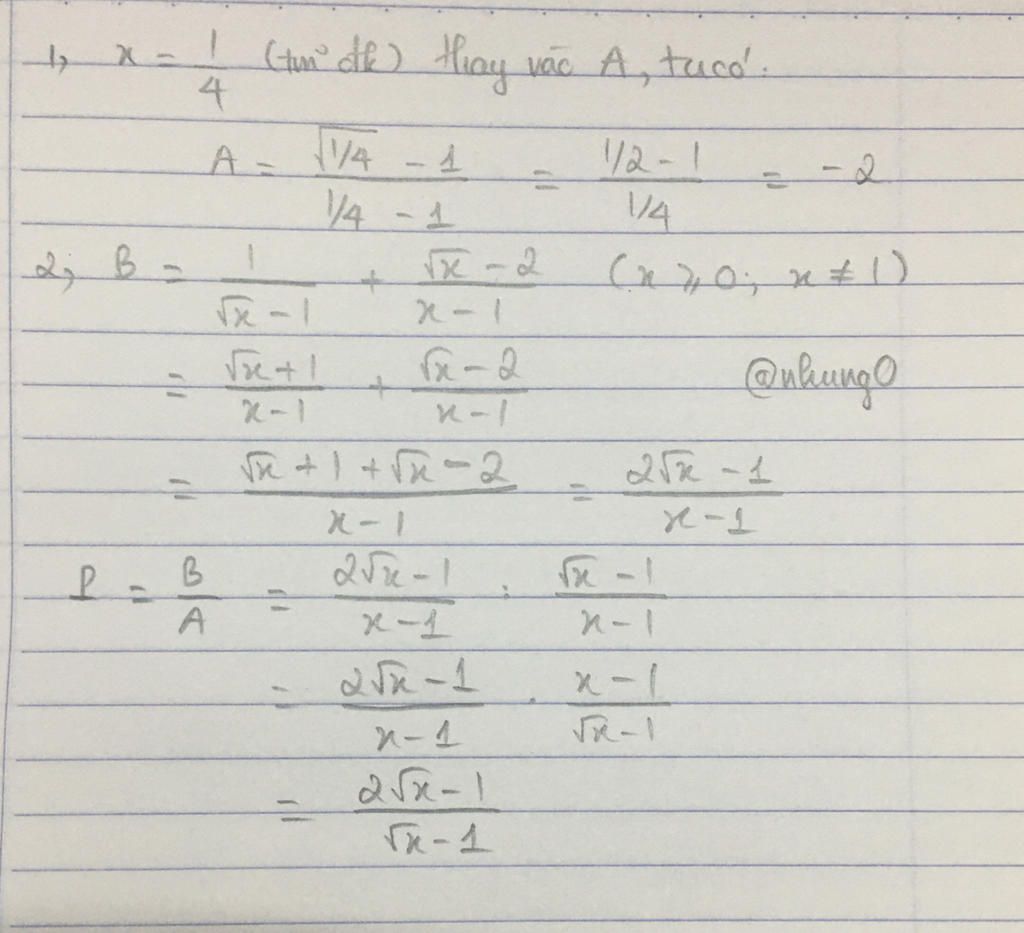 1, x = 1/4 (tm đk) thay vào A, ta có:
A = (√1/4 - 1)/(1/4 - 1) = (1/2 - 1)/(1/4) = -2
2, B = 1/(√x - 1) + (√x - 2)/(x - 1) (x ≥ 0; x ≠ 1)
= (√x + 1)/(x - 1) + (√x - 2)/(x - 1)
@nhung0
= (√x + 1 + √x - 2)/(x - 1) = (2√x - 1)/(x - 1)
P = B/A = (2√x - 1)/(x - 1) : (√x - 1)/(x - 1)
= (2√x - 1)/(x - 1) . (x - 1)/(√x - 1)
= (2√x - 1)/(√x - 1)